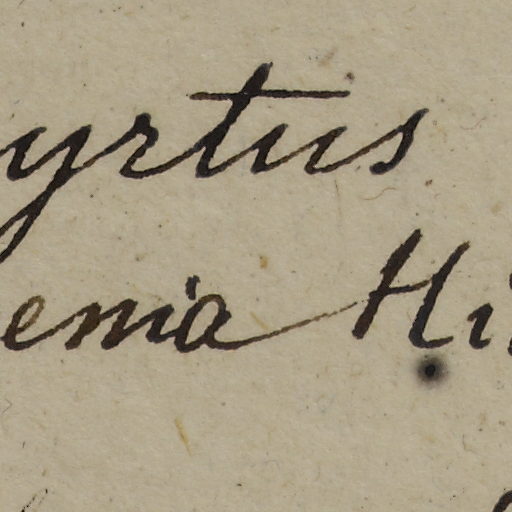 yrtus
enia Hi